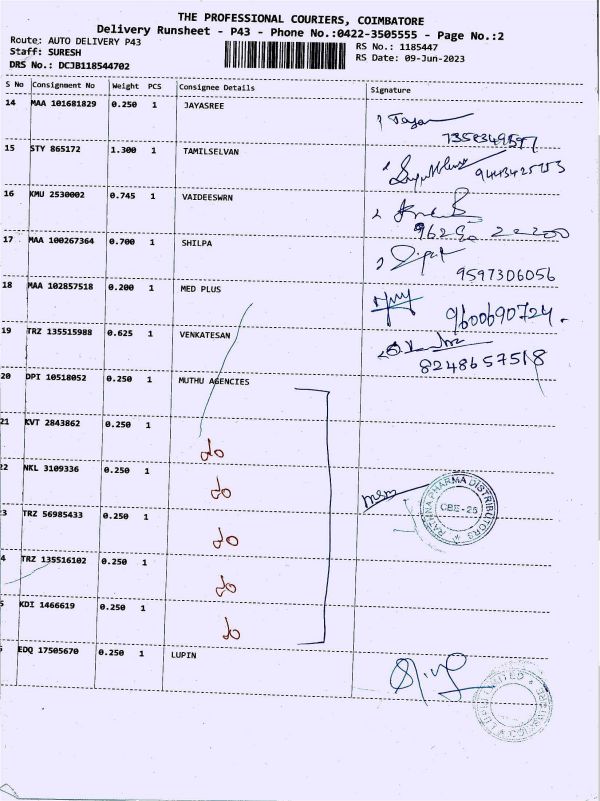 THE PROFESSIONAL COURIERS, COIMBATORE
Delivery Runsheet - P43 - Phone No.:0422-3505555 - Page No.:2
Route: AUTO DELIVERY P43
Staff: SURESH
DRS No.: DCJB118544702
RS No.: 1185447
RS Date: 09-Jun-2023
S No Consignment No Weight PCS Consignee Details Signature
14 MAA 101681829 0.250 1 JAYASREE
15 STY 865172 1.300 1 TAMILSELVAN
9443425753
16 KMU 2530002 0.745 1 VAIDEESWRN
17 MAA 100267364 0.700 1 SHILPA
9597306056
18 MAA 102857518 0.200 1 MED PLUS
9600690724.
19 TRZ 135515988 0.625 1 VENKATESAN
8248657518
20 DPI 10518052 0.250 1 MUTHU AGENCIES
21 KVT 2843862 0.250 1
do
22 NKL 3109336 0.250 1
do
3 TRZ 56985433 0.250 1
do
RATHNA PHARMA DISTRIBUTORS
CBE-25
4 TRZ 135516102 0.250 1
do
5 KDI 1466619 0.250 1
do
EDQ 17505670 0.250 1 LUPIN